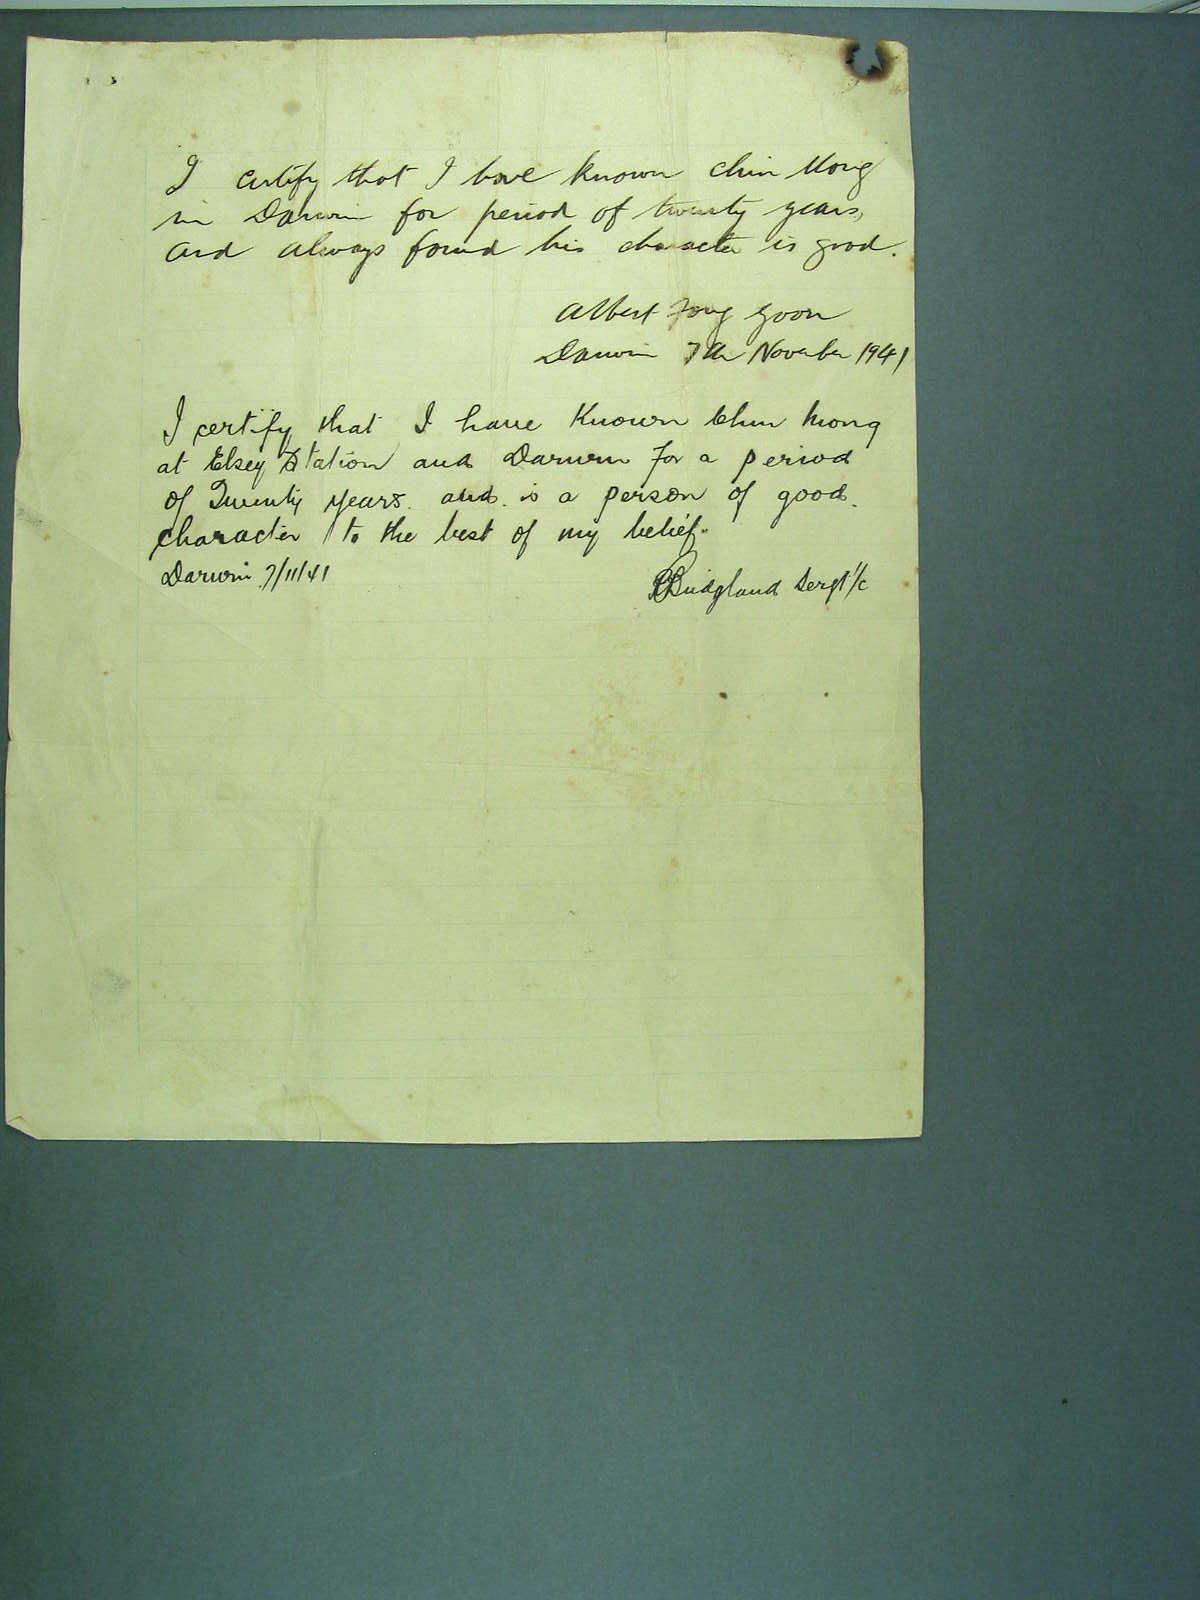 I certify that I have known Chin Mong
in Darwin for period of twenty years,
and always found his character is good.
Albert Fong Goon
Darwin 7th November 1941
I certify that I have Known Chin Mong
at Elsey Station and Darwin for a period
of Twenty years. and. is a person of good.
character to the best of my belief.
Darwin 7/11/41
Bridgland Sergt 1/c